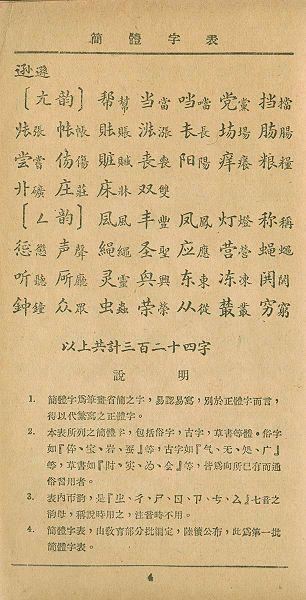 簡體字表
逊遜
〔ㄤ韵〕帮幫 当當 噹 党黨 挡擋
张張 帐帳 账賬 涨漲 长長 场場 肠腸
尝嘗 伤傷 赃贜 丧喪 阳陽 痒癢 粮糧
礦 庄莊 床牀 双雙
〔ㄥ韵〕风風 丰豐 凤鳳 灯燈 称稱
惩懲 声聲 绳繩 圣聖 应應 营營 蝇蠅
听聽 厅廳 灵靈 兴興 东東 冻凍 窮
鐘 众眾 虫蟲 荣榮 从從 叢
以上共計三百二十四字
說明
1. 簡體字爲筆畫省簡之字，易認易寫，別於正體字而言，
得以代繁寫之正體字。
2. 本表所列之簡體字，包括俗字，古字，草書等體。俗字
如『体、宝、岩、蚕』等，古字如『气、无、处、广』
等，草書如『时、实、为、会』等，皆爲向所已有而通
俗習用者。
3. 表內市韵，是『ㄓ、ㄔ、ㄕ、ㄖ、ㄗ、ㄘ、ㄙ』七音之
韵母，稱說時用之，注音時不用。
4. 簡體字表，由教育部分批編定，陸續公布，此爲第一批
簡體字表。
4